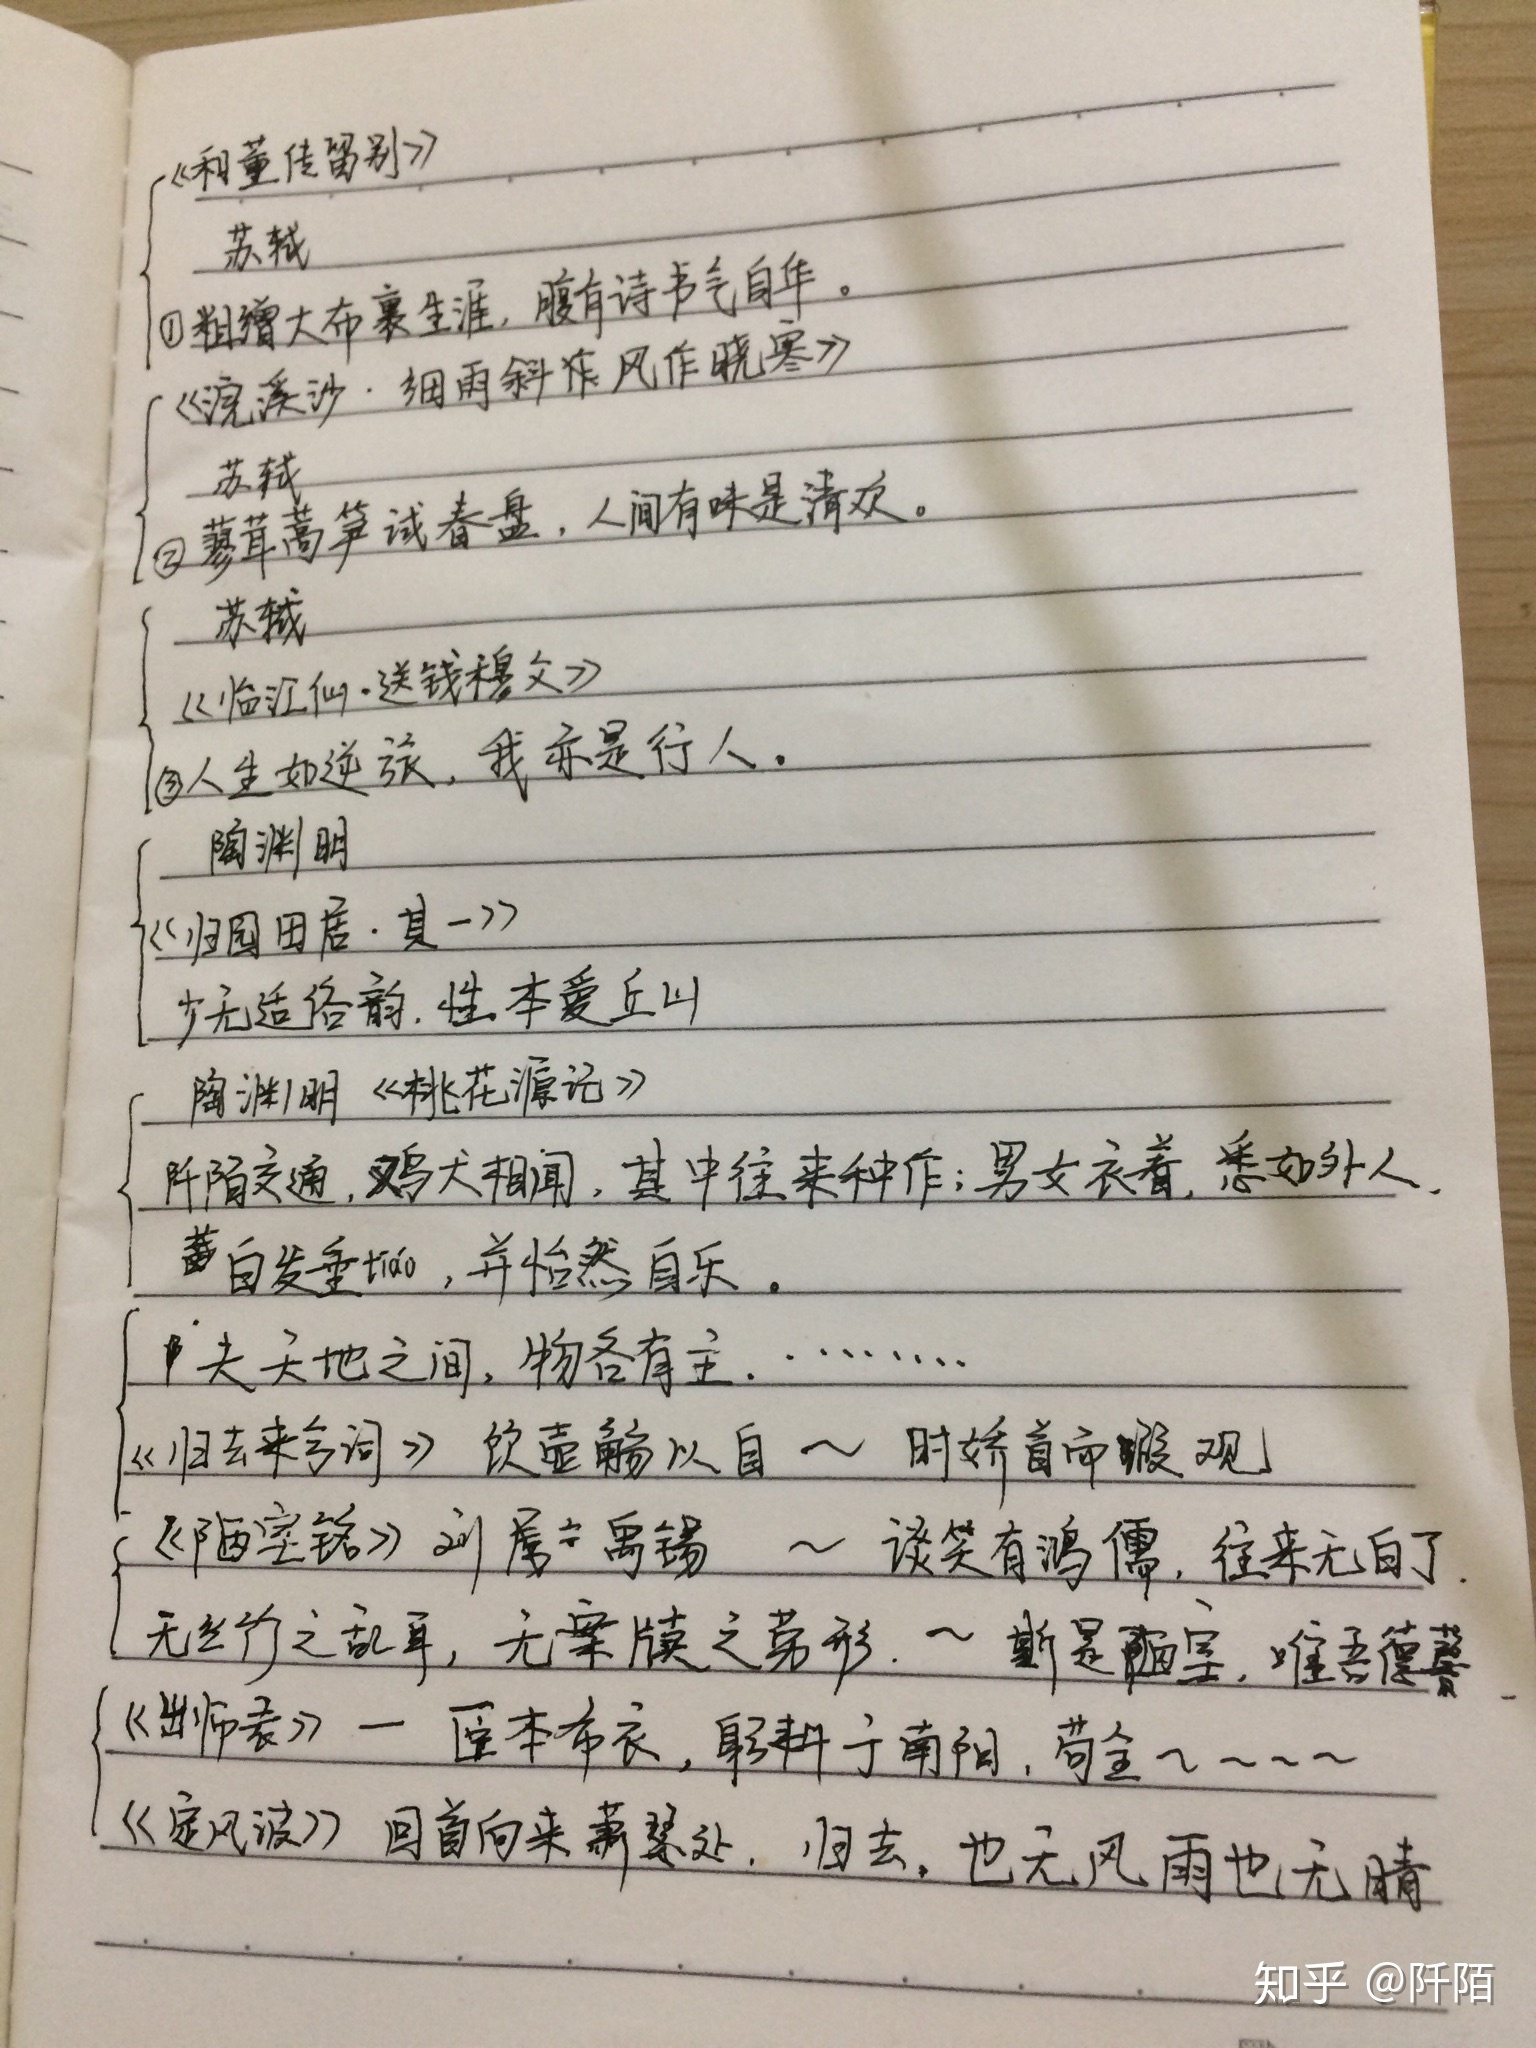 《和董传留别》
苏轼
①粗缯大布裹生涯，腹有诗书气自华。
《浣溪沙·细雨斜作风作晓寒》
苏轼
②蓼茸蒿笋试春盘，人间有味是清欢。
苏轼
《临江仙·送钱穆文》
③人生如逆旅，我亦是行人。
陶渊明
《归园田居·其一》
少无适俗韵，性本爱丘山
陶渊明《桃花源记》
阡陌交通，鸡犬相闻，其中往来种作；男女衣着，悉如外人，
黄白发垂tiáo，并怡然自乐。
夫天地之间，物各有主.………
《归去来兮词》 饮壶觞以自～ 时娇首而暇观
《陋室铭》刘禹锡 ～ 谈笑有鸿儒，往来无白丁.
无丝竹之乱耳，无案牍之劳形.～ 斯是陋室，唯吾德馨
《出师表》一 臣本布衣，躬耕于南阳，苟全～～～～
《定风波》 回首向来萧瑟处，归去。也无风雨也无晴
知乎 @阡陌